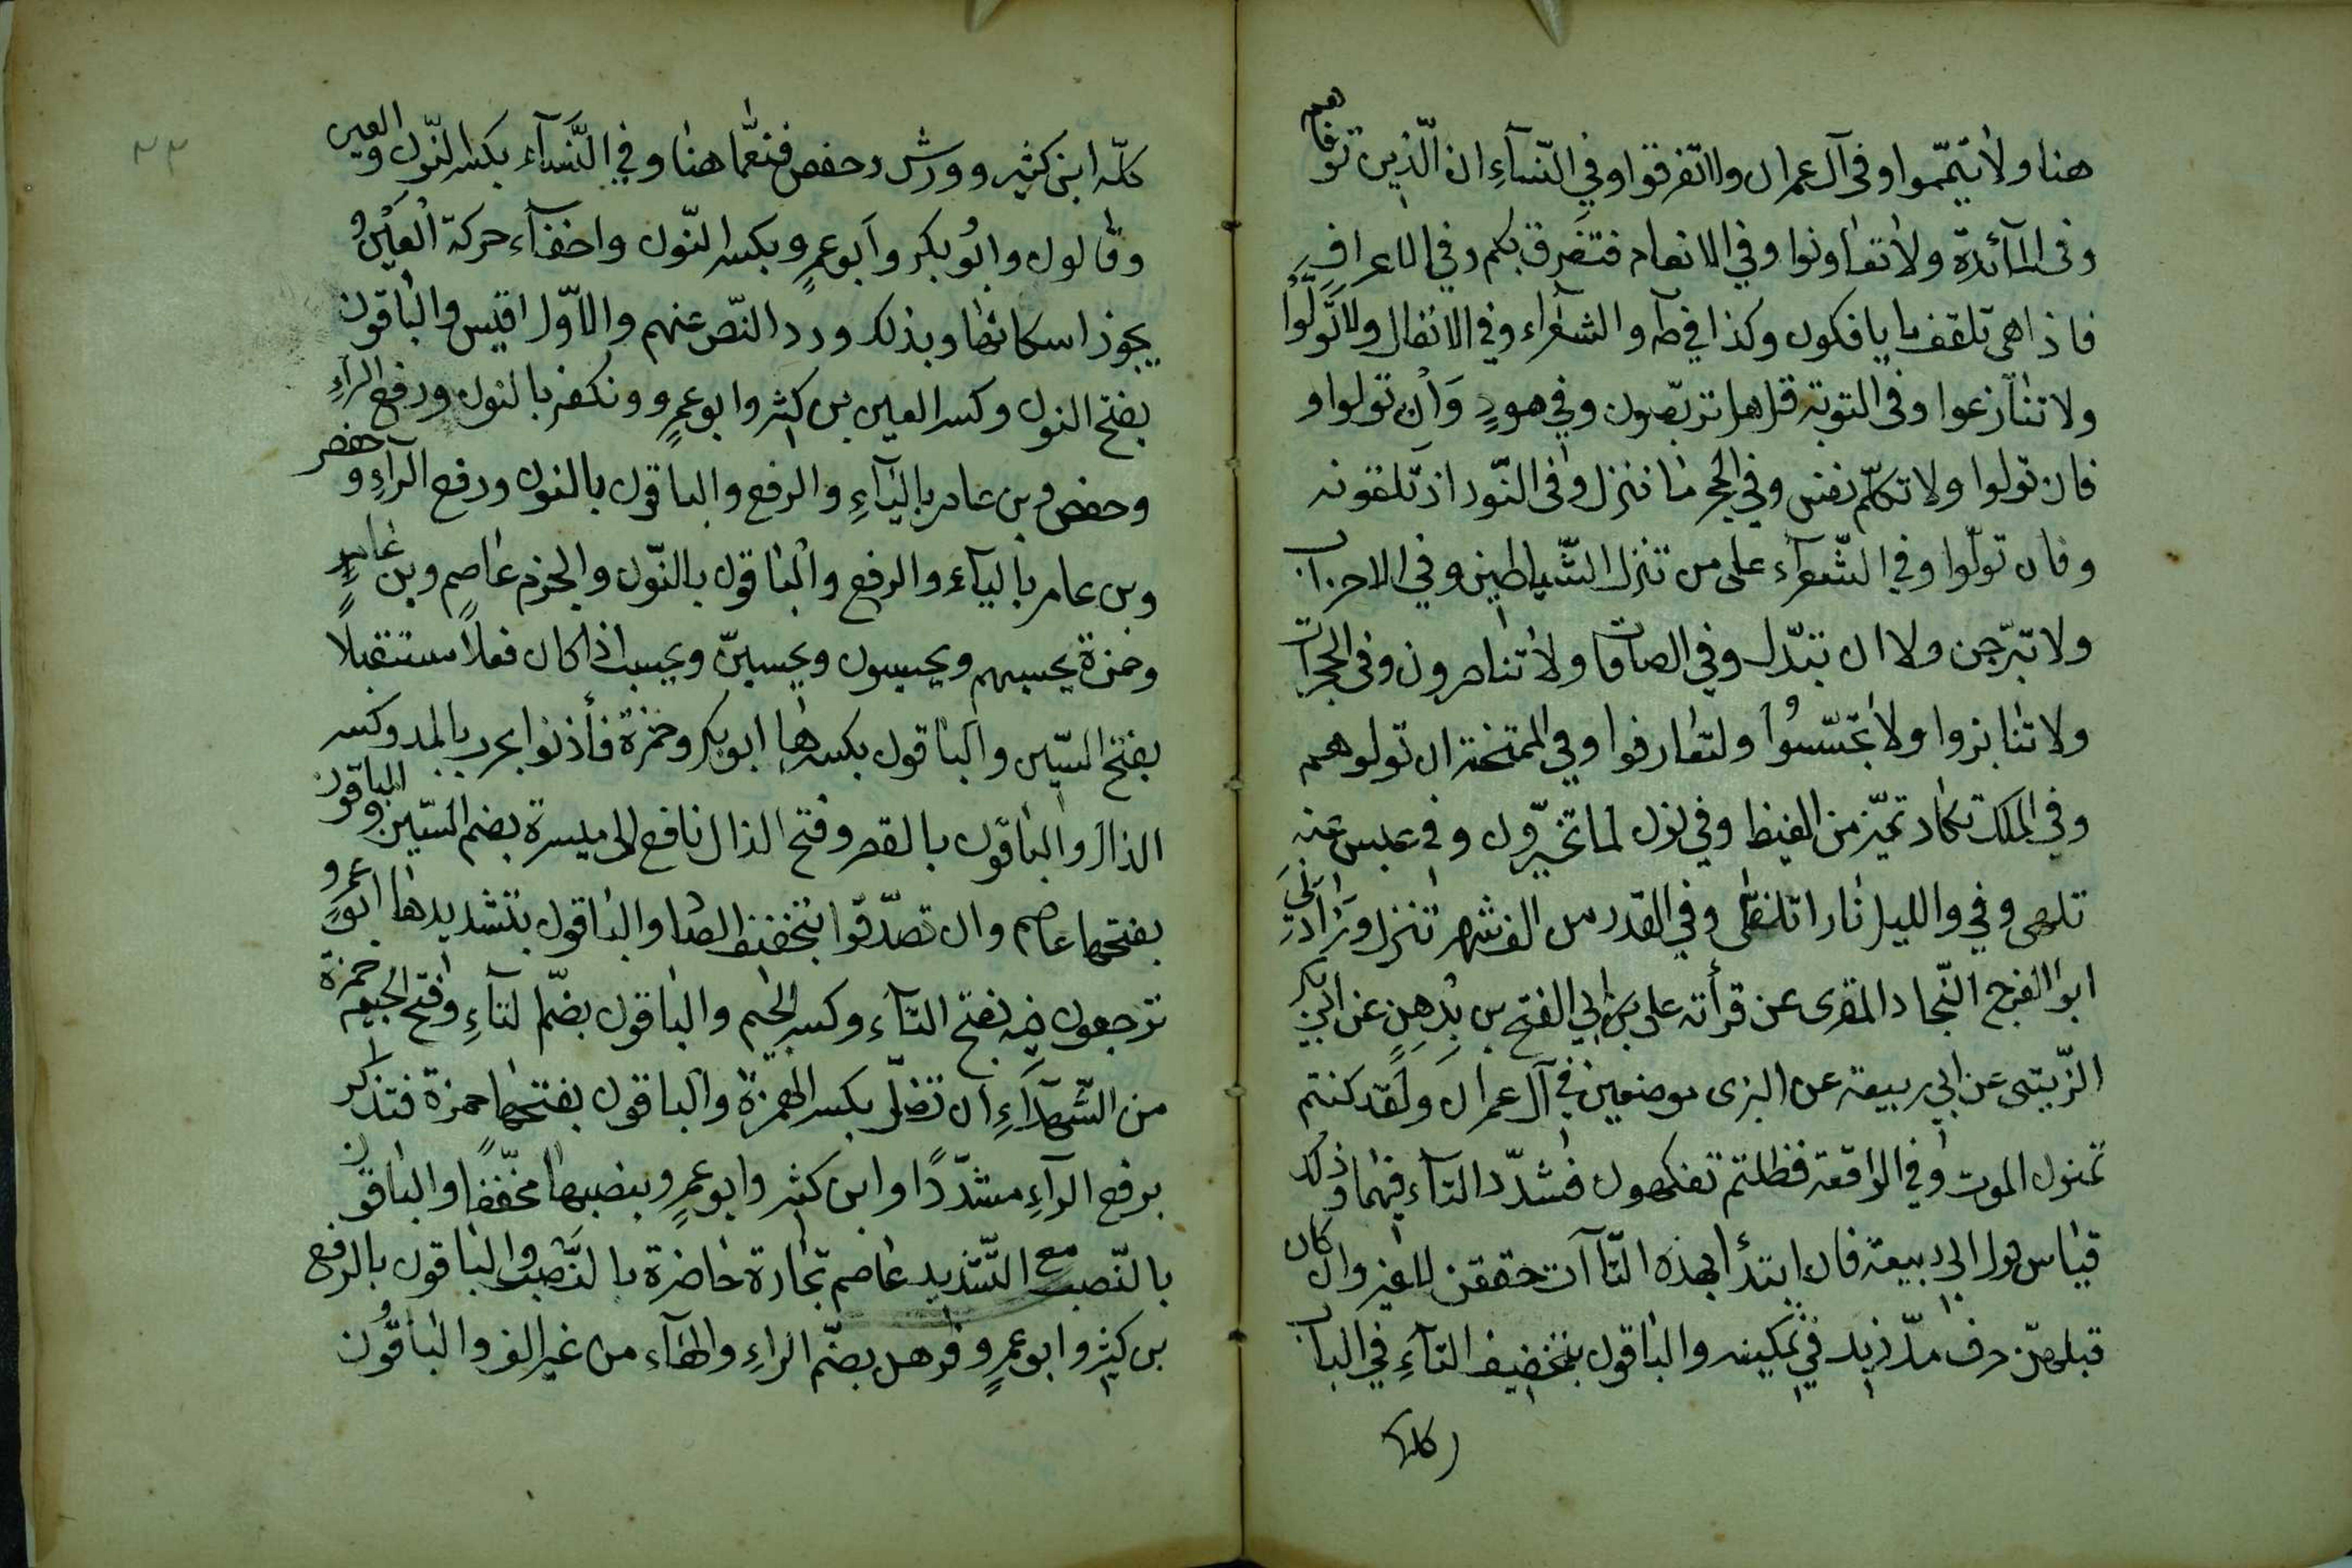 هنا ولا تيمّموا وفى آل عمران ولا تفرقوا وفي النّسآءِ ان الّذين توفاهم
وفى المآئدة ولا تعاونوا وفي الانعام فتفرق بكم وفي الاعراف
فاذا هى تلقف ما يافكون وكذا في طه والشعراء وفي الانفال ولا تَّولّوْا
ولا تنازعوا وفى التوبة قل هل تربّصون وفي هودٍ وَاِن تولوا و
فان تولوا ولا تكلّم نفس وفي الحجر ما ننزل وفى النّور اذ تلقونه
وفان تولّوا وفي الشّعرآء على من تنزل الشّياطين وفي الاحزاب
ولا تبرّجن ولا ان تبدّل وفي الصافات ولا تناصرون وفى الحجرات
ولا تنابزوا ولا تجسّسُوا ولتعارفوا وفي الممتحنة ان تولوهم
وفي الملك تكاد تميّز من الغيظ وفي نون لما تخيّرون وفي عبس عنه
تلهى وفي والليل نارا تلظى وفي القدر من الف شهر تنزل وزادني
ابو الفرج النّجاد المقرى عن قرأته على بن ابي الفتح بن بُدهنٍ عن ابي بكر
الزّينبى عن ابي ربيعة عن البزى موضعين في آل عمران ولقد كنتم
تمنون الموت وفي الواقعة فظلتم تفكهون فشدّد التآء فيهما وذلك
قياس قول ابي ربيعة فان ابتدأ بهذه التّاآت خففن لا غير وان كان
قبلهنّ حرف مدّ زيد في تمكينه والباقون بتخفيف التآءِ في الباب
كله
٣٣
كلّه ابن كثير وورش وحفص فنعمّا هنا وفي النّسآء بكسر النّون والعين
وقالون وابُو بكر وَابو عمرٍو بكسر النّون واخفآء حركة العَيْن و
يجوز اسكانها وبذلك ورد النّص عنهم والاوّل اقيس والباقون
بفتح النون وكسر العين بن كثير وابو عمرٍو ونكفر بالنون ورفع الرآءِ
وحفص وبن عامر باليآءِ والرفع والباقون بالنون ورفع الرآءِ و حفص
وبن عامر باليآء والرفع والباقون بالنّون والجزم عاصم وبن عامرٍ
وحمزة يحسبهم ويحسبون ويحسبنّ ويحسب اذا كان فعلًا مستقبلًا
بفتح السّين والباقون بكسرها ابو بكر وحمزة فأذنوا بحرب بالمد وكسر
الذال والباقون بالقصر وفتح الذال نافع الى ميسرة بضم السّين والباقون
بفتحها عاصم وان تصدّقوا بتخفيف الصاد والباقون بتشديدها ابو عمرٍو
ترجعون فيه بفتح التآء وكسر الجيم والباقون بضمّ التآءِ وفتح الجيم حمزة
من الشّهدآءِ ان تضلّ بكسر الهمزة والباقون بفتحها حمزة فتذكر
برفع الرآءِ مشدّدًا وابن كثير وابو عمرٍو بنصبها مخفّفًا والباقون
بالنّصب مع التّشديد عاصم تجارة حاضرة بالنَّصب والباقون بالرفع
بن كثير وابو عمرٍو فرهن بضمّ الراءِ والهآء من غير الف والباقُون